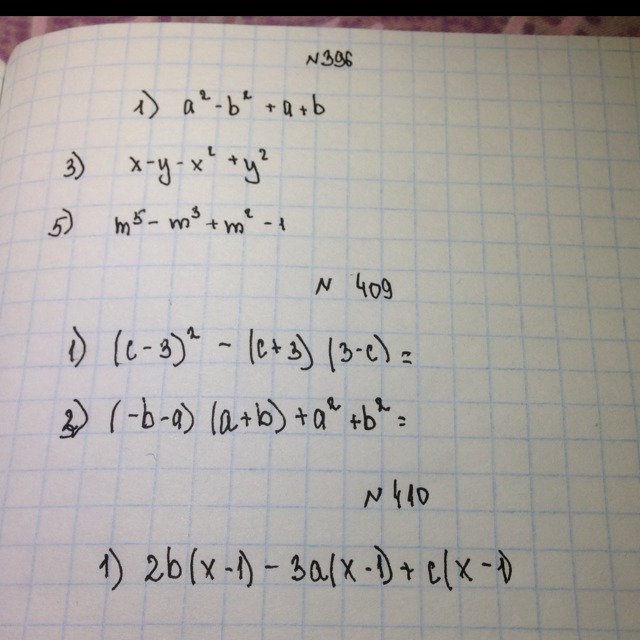 N396
1) a² - b² + a + b
3) x - y - x² + y²
5) m⁵ - m³ + m² - 1
N 409
1) (c - 3)² - (c + 3) (3 - c) =
2) (-b - a) (a + b) + a² + b² =
N 410
1) 2b(x - 1) - 3a(x - 1) + c(x - 1)